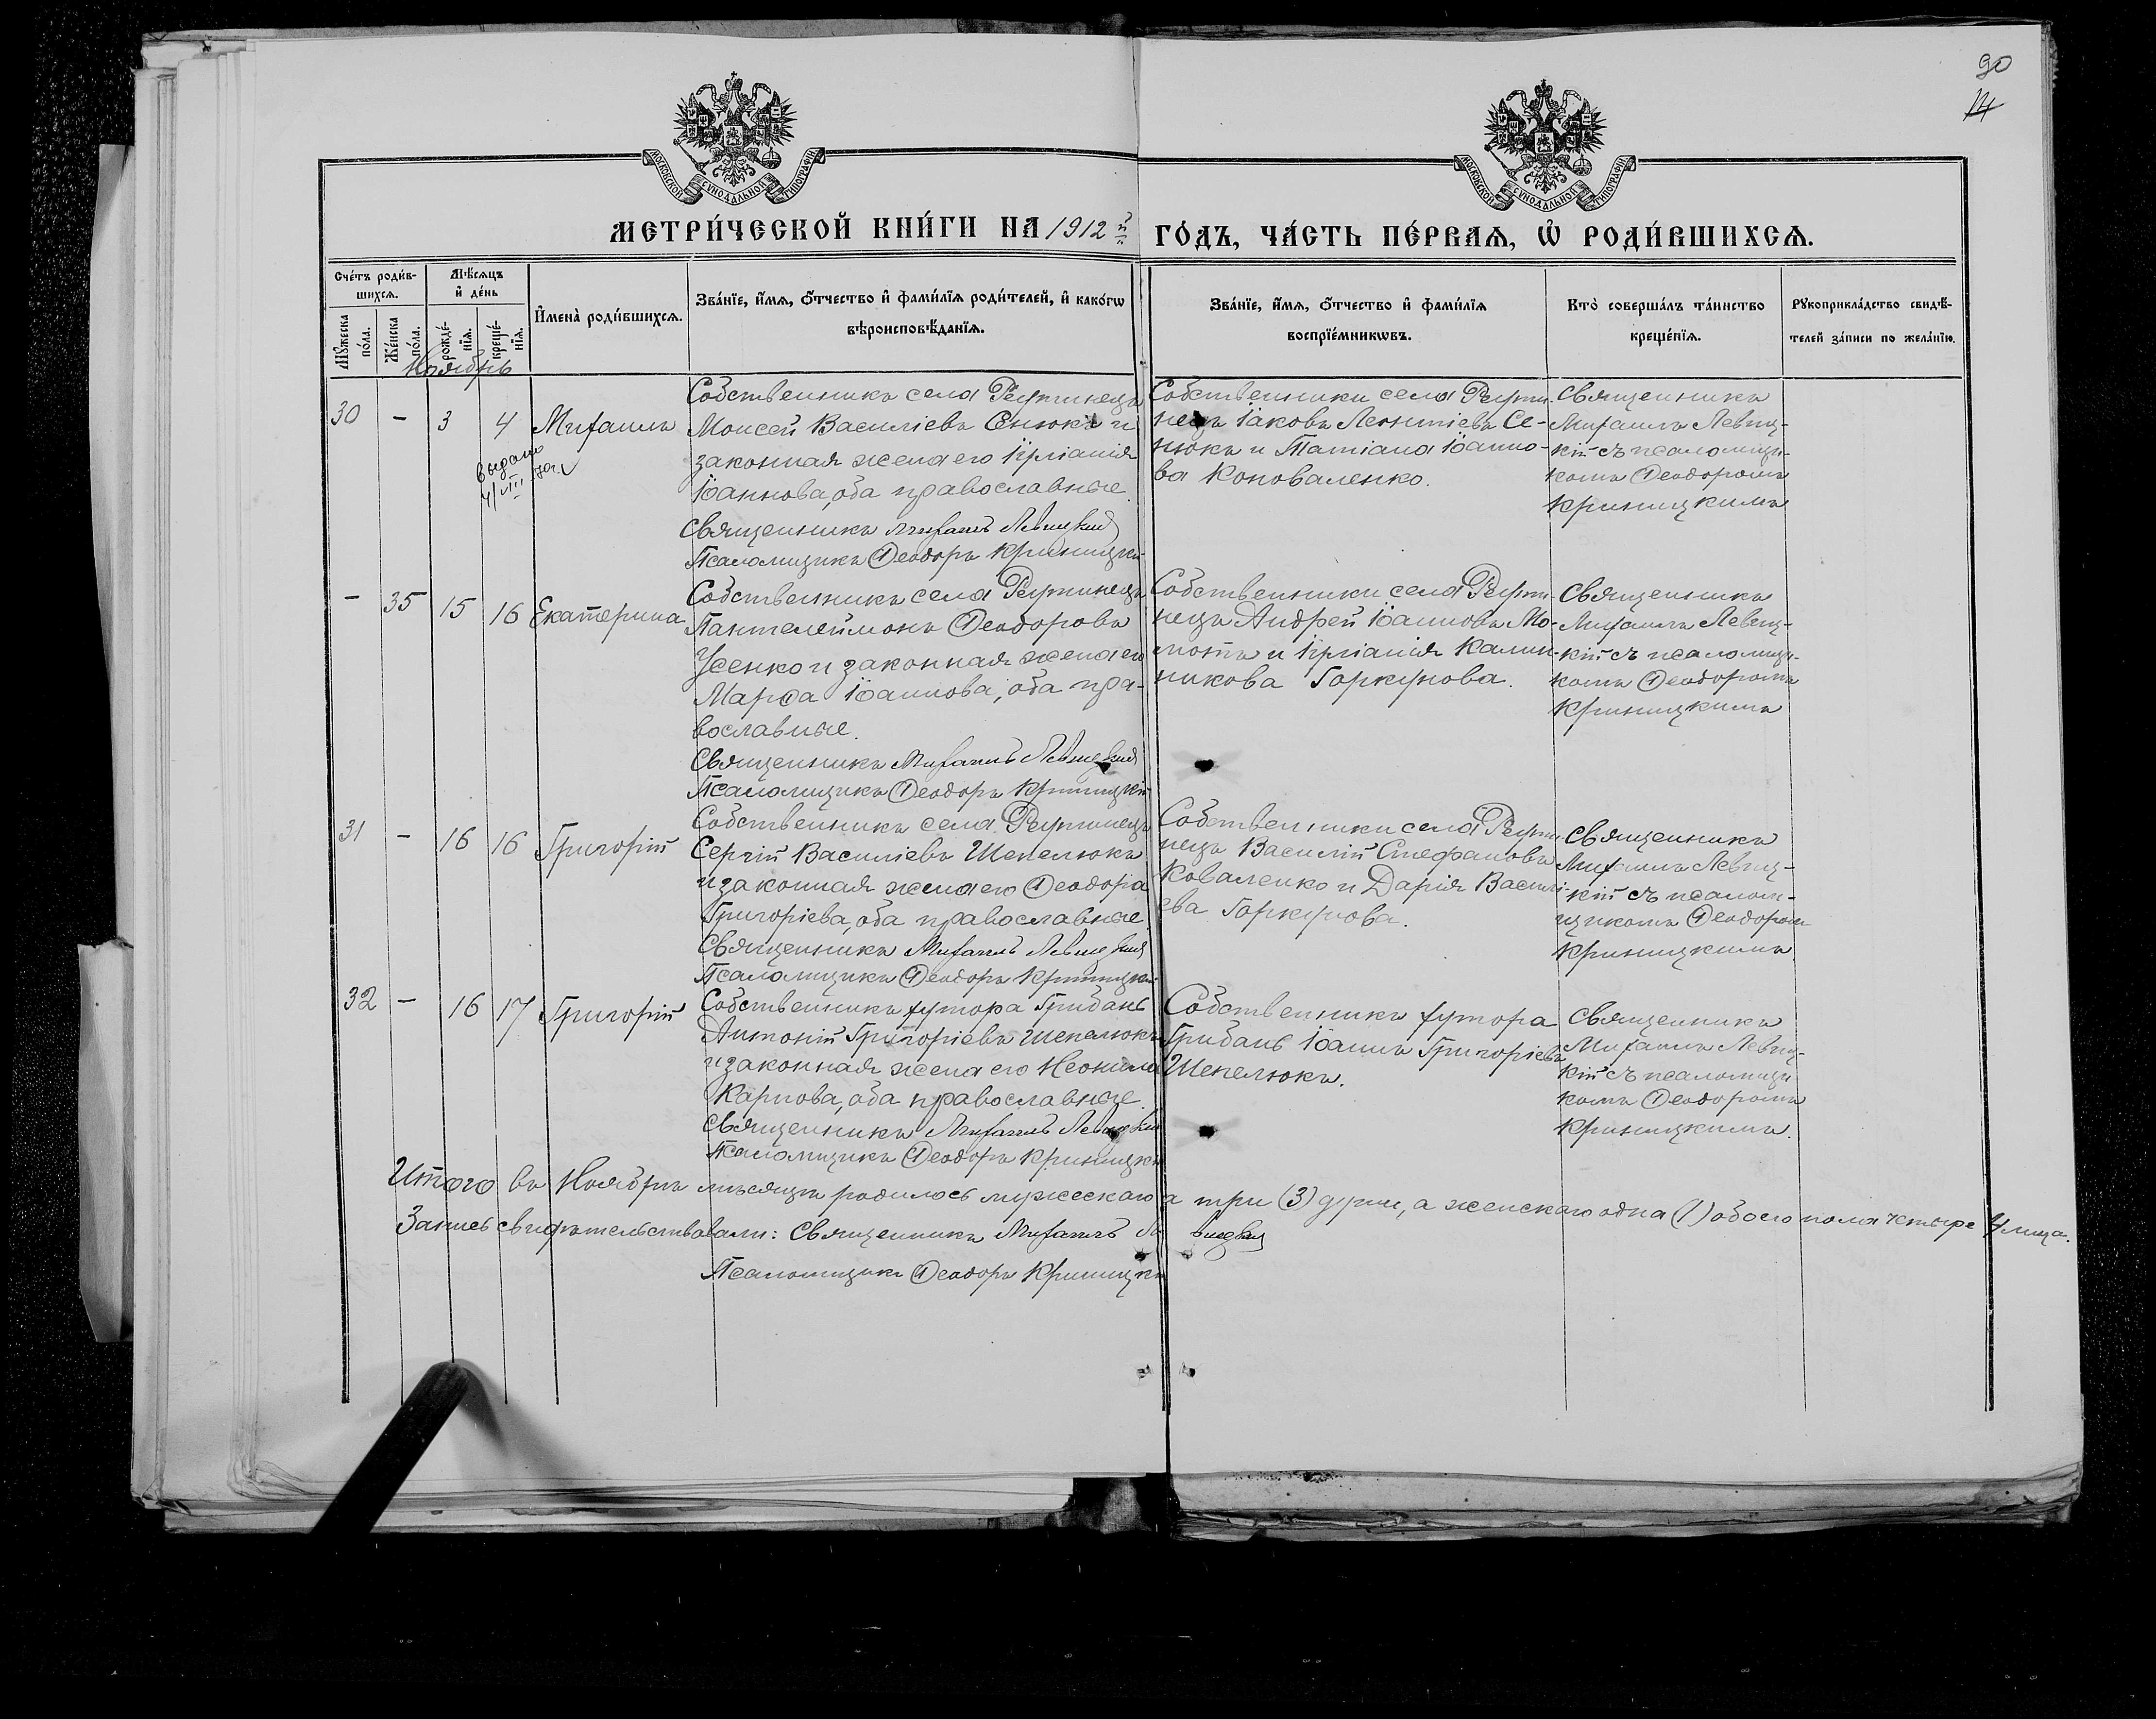 90
14
МОСКОВСКОЙ СѴНОДАЛЬНОЙ ТИПОГРАФІИ
МОСКОВСКОЙ СѴНОДАЛЬНОЙ ТИПОГРАФІИ
МЕТРИ́ЧЕСКОЙ КНИ́ГИ НА 1912й ГО́ДЪ, ЧА́СТЬ ПЕ́РВАѦ, Ѡ҆ РОДИ́ВШИХСѦ.
Сче́тъ роди́в-
шихсѧ.
Мꙋ́жеска
по́ла.
Же́нска
по́ла.
Мѣ́сѧцъ
и҆ де́нь
рожде́-
нїѧ.
креще́-
нїѧ.
И҆мена̀ роди́вшихсѧ.
Зва́нїе, и҆́мѧ, ѻ҆́тчество и҆ фами́лїѧ роди́телей, и҆ како́гѡ
вѣроисповѣ́данїѧ.
Зва́нїе, и҆́мѧ, ѻ҆́тчество и҆ фами́лїѧ
воспрїе́мникѡвъ.
Кто̀ соверша́лъ та́инство
креще́нїѧ.
Рꙋкоприкла́дство свидѣ́-
телей за́писи по жела́нїю.
Ноябрь
30 – 3 4 Михаилъ
выдано
4/VIII 70г.
Собственникъ села Реутинецъ
Моисей Василіевъ Сенюкъ и
законная жена его Іуліанія
Іоаннова, оба православные.
Священникъ Михаилъ Левицкий
Псаломщикъ Ѳеодоръ Криницкій
Собственники села Реути-
нецъ Іаковъ Леонтіевъ Се-
нюкъ и Татіана Іоанно-
ва Коноваленко.
Священникъ
Михаилъ Левиц-
кій съ псаломщи-
комъ Ѳеодоромъ
Криницкимъ
– 35 15 16 Екатерина
Собственникъ села Реутинецъ
Пантелеймонъ Ѳеодоровъ
Усенко и законная жена его
Марѳа Іоаннова, оба пра-
вославные.
Священникъ Михаилъ Левицкий
Псаломщикъ Ѳеодоръ Криницкій
Собственники села Реути-
нецъ Андрей Іоанновъ Мо-
лотъ и Іуліанія Калин-
никова Горкунова.
Священникъ
Михаилъ Левиц-
кій съ псаломщи-
комъ Ѳеодоромъ
Криницкимъ
31 – 16 16 Григорій
Собственникъ села Реутинецъ
Сергій Василіевъ Шепелюкъ
и законная жена его Ѳеодора
Григоріева, оба православные.
Священникъ Михаилъ Левицкий
Псаломщикъ Ѳеодоръ Криницкій
Собственники села Реути-
нецъ Василій Стефановъ
Коваленко и Дарія Васили-
ева Горкунова.
Священникъ
Михаилъ Левиц-
кій съ псалом-
щикомъ Ѳеодоромъ
Криницкимъ
32 – 16 17 Григорій
Собственникъ хутора Грибань
Антоній Григоріевъ Шепелюкъ
и законная жена его Неонила
Карпова, оба православные.
Священникъ Михаилъ Левицкий
Псаломщикъ Ѳеодоръ Криницкій
Собственникъ хутора
Грибань Іоаннъ Григоріевъ
Шепелюкъ.
Священникъ
Михаилъ Левиц-
кій съ псаломщи-
комъ Ѳеодоромъ
Криницкимъ.
Итого въ Ноябрѣ мѣсяцѣ родилось мужескаго а три (3) души, а женскаго одна (1) обоего пола четыре 4 лица.
Запись свидѣтельствовали: Священникъ Михаилъ Левицкий
Псаломщикъ Ѳеодоръ Криницкій